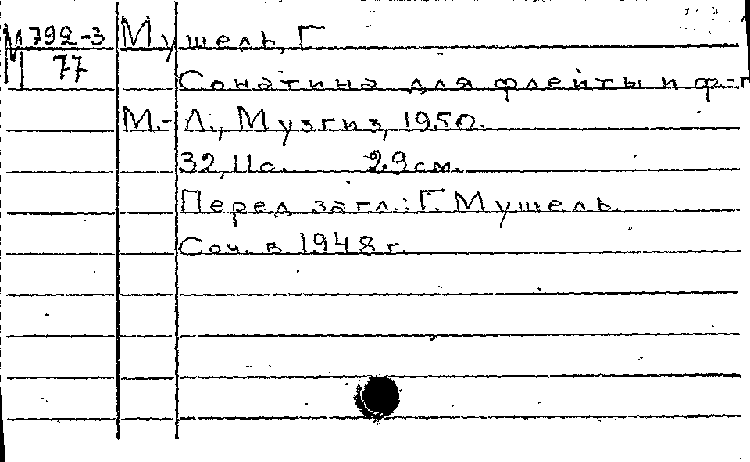 М 792-3
77
Мушель, Г
Сонатина для флейты и ф-п
М.-Л., Музгиз, 1950.
32, 11с. 29см.
Перед загл.: Г. Мушель
Соч. в 1948 г.